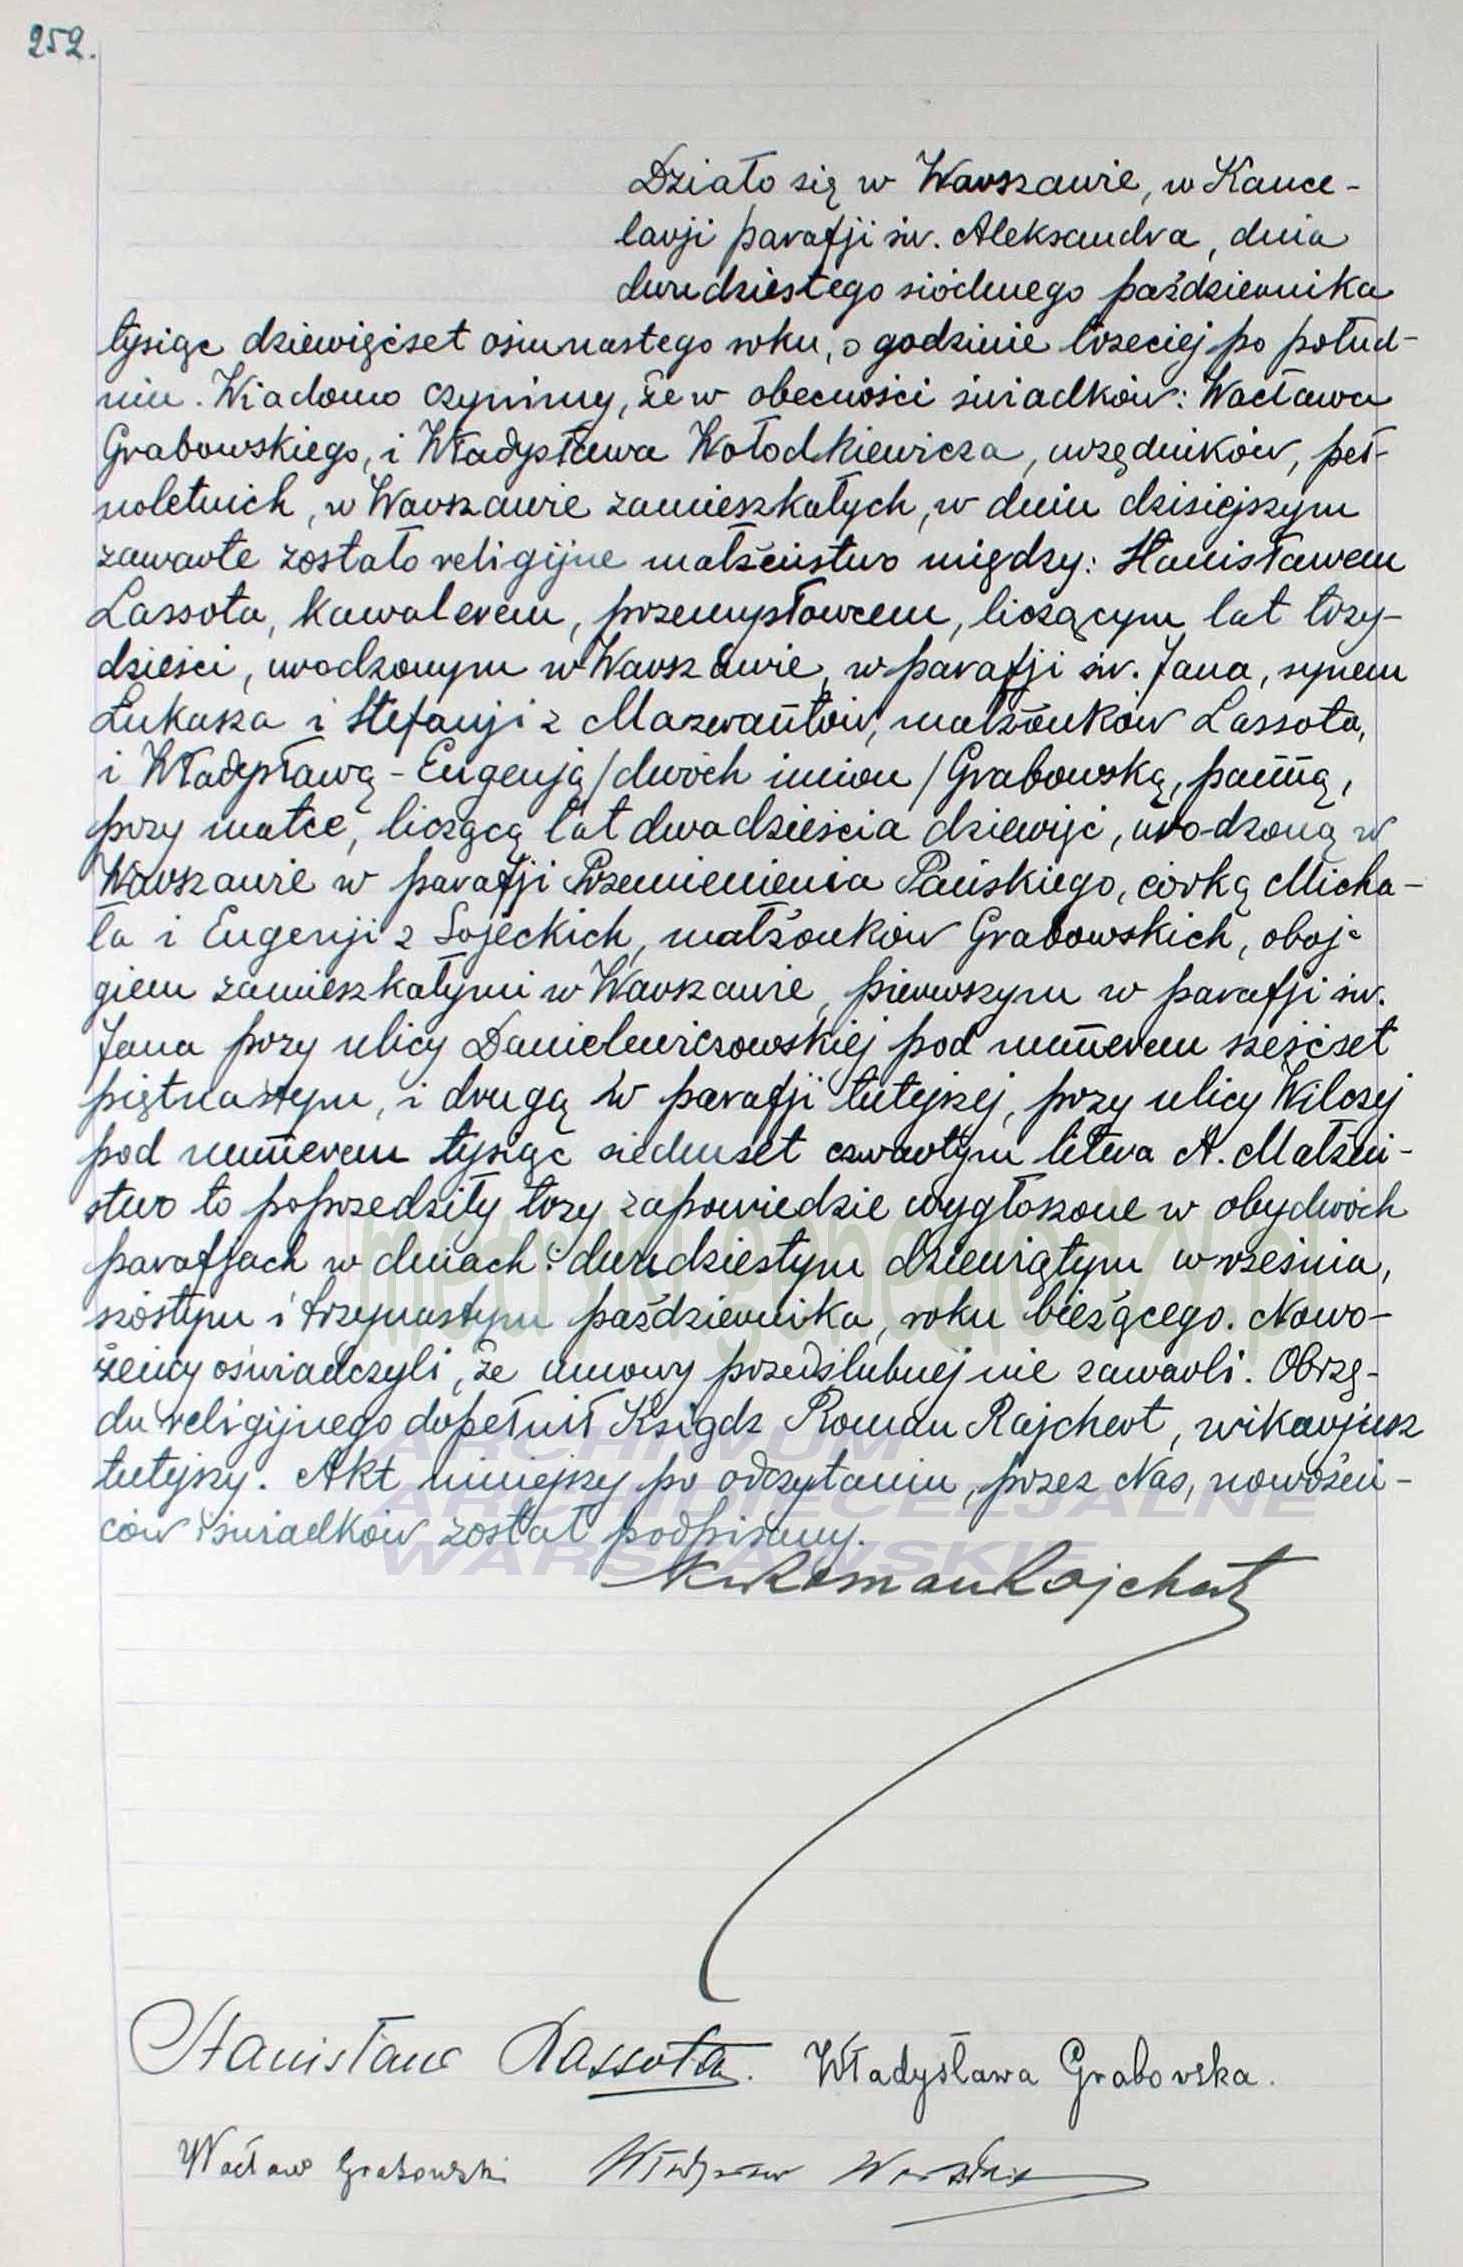 252.
Działo się w Warszawie, w Kance-
larji parafji św. Aleksandra, dnia
dwudziestego siódmego października
tysiąc dziewięćset osiemnastego roku, o godzinie trzeciej po połud-
niu. Wiadomo czynimy, że w obecności świadków: Wacława
Grabowskiego, i Władysława Wołodkiewicza, urzędników, peł-
noletnich, w Warszawie zamieszkałych, w dniu dzisiejszym
zawarte zostało religijne małżeństwo między: Stanisławem
Lassota, kawalerem, przemysłowcem, liczącym lat trzy-
dzieści, urodzonym w Warszawie, w parafji św. Jana, synem
Łukasza i Stefanji z , małżonków Lassota,
i Władysławą-Eugenją /dwóch imion/ Grabowską, panną,
przy matce, liczącą lat dwadzieścia dziewięć, urodzoną w
Warszawie w parafji Przemienienia Pańskiego, córką Micha-
ła i Eugenji z Sojeckich, małżonków Grabowskich, oboj-
giem zamieszkałymi w Warszawie, pierwszym w parafji św.
Jana przy ulicy Danielewiczowskiej pod numerem sześćset
piętnastym, i drugą w parafji tutejszej, przy ulicy Wilczej
pod numerem tysiąc siedmset czwartym litera A. Małżeń-
stwo to poprzedziły trzy zapowiedzie wygłoszone w obydwóch
parafjach w dniach: dwudziestym dziewiątym września,
szóstym i trzynastym października, roku bieżącego. Nowo-
żeńcy oświadczyli, że umowy przedślubnej nie zawarli. Obrzę-
du religijnego dopełnił Ksiądz Roman Rajchert, wikarjusz
tutejszy. Akt niniejszy po odczytaniu, przez Nas, nowożeń-
ców i świadków został podpisany.
Roman Rajchert
Stanisław Lassota. Władysława Grabowska.
Wacław Grabowski Władysław
metryki.genealodzy.pl
ARCHIWUM
ARCHIDIECEZJALNE
WARSZAWSKIE